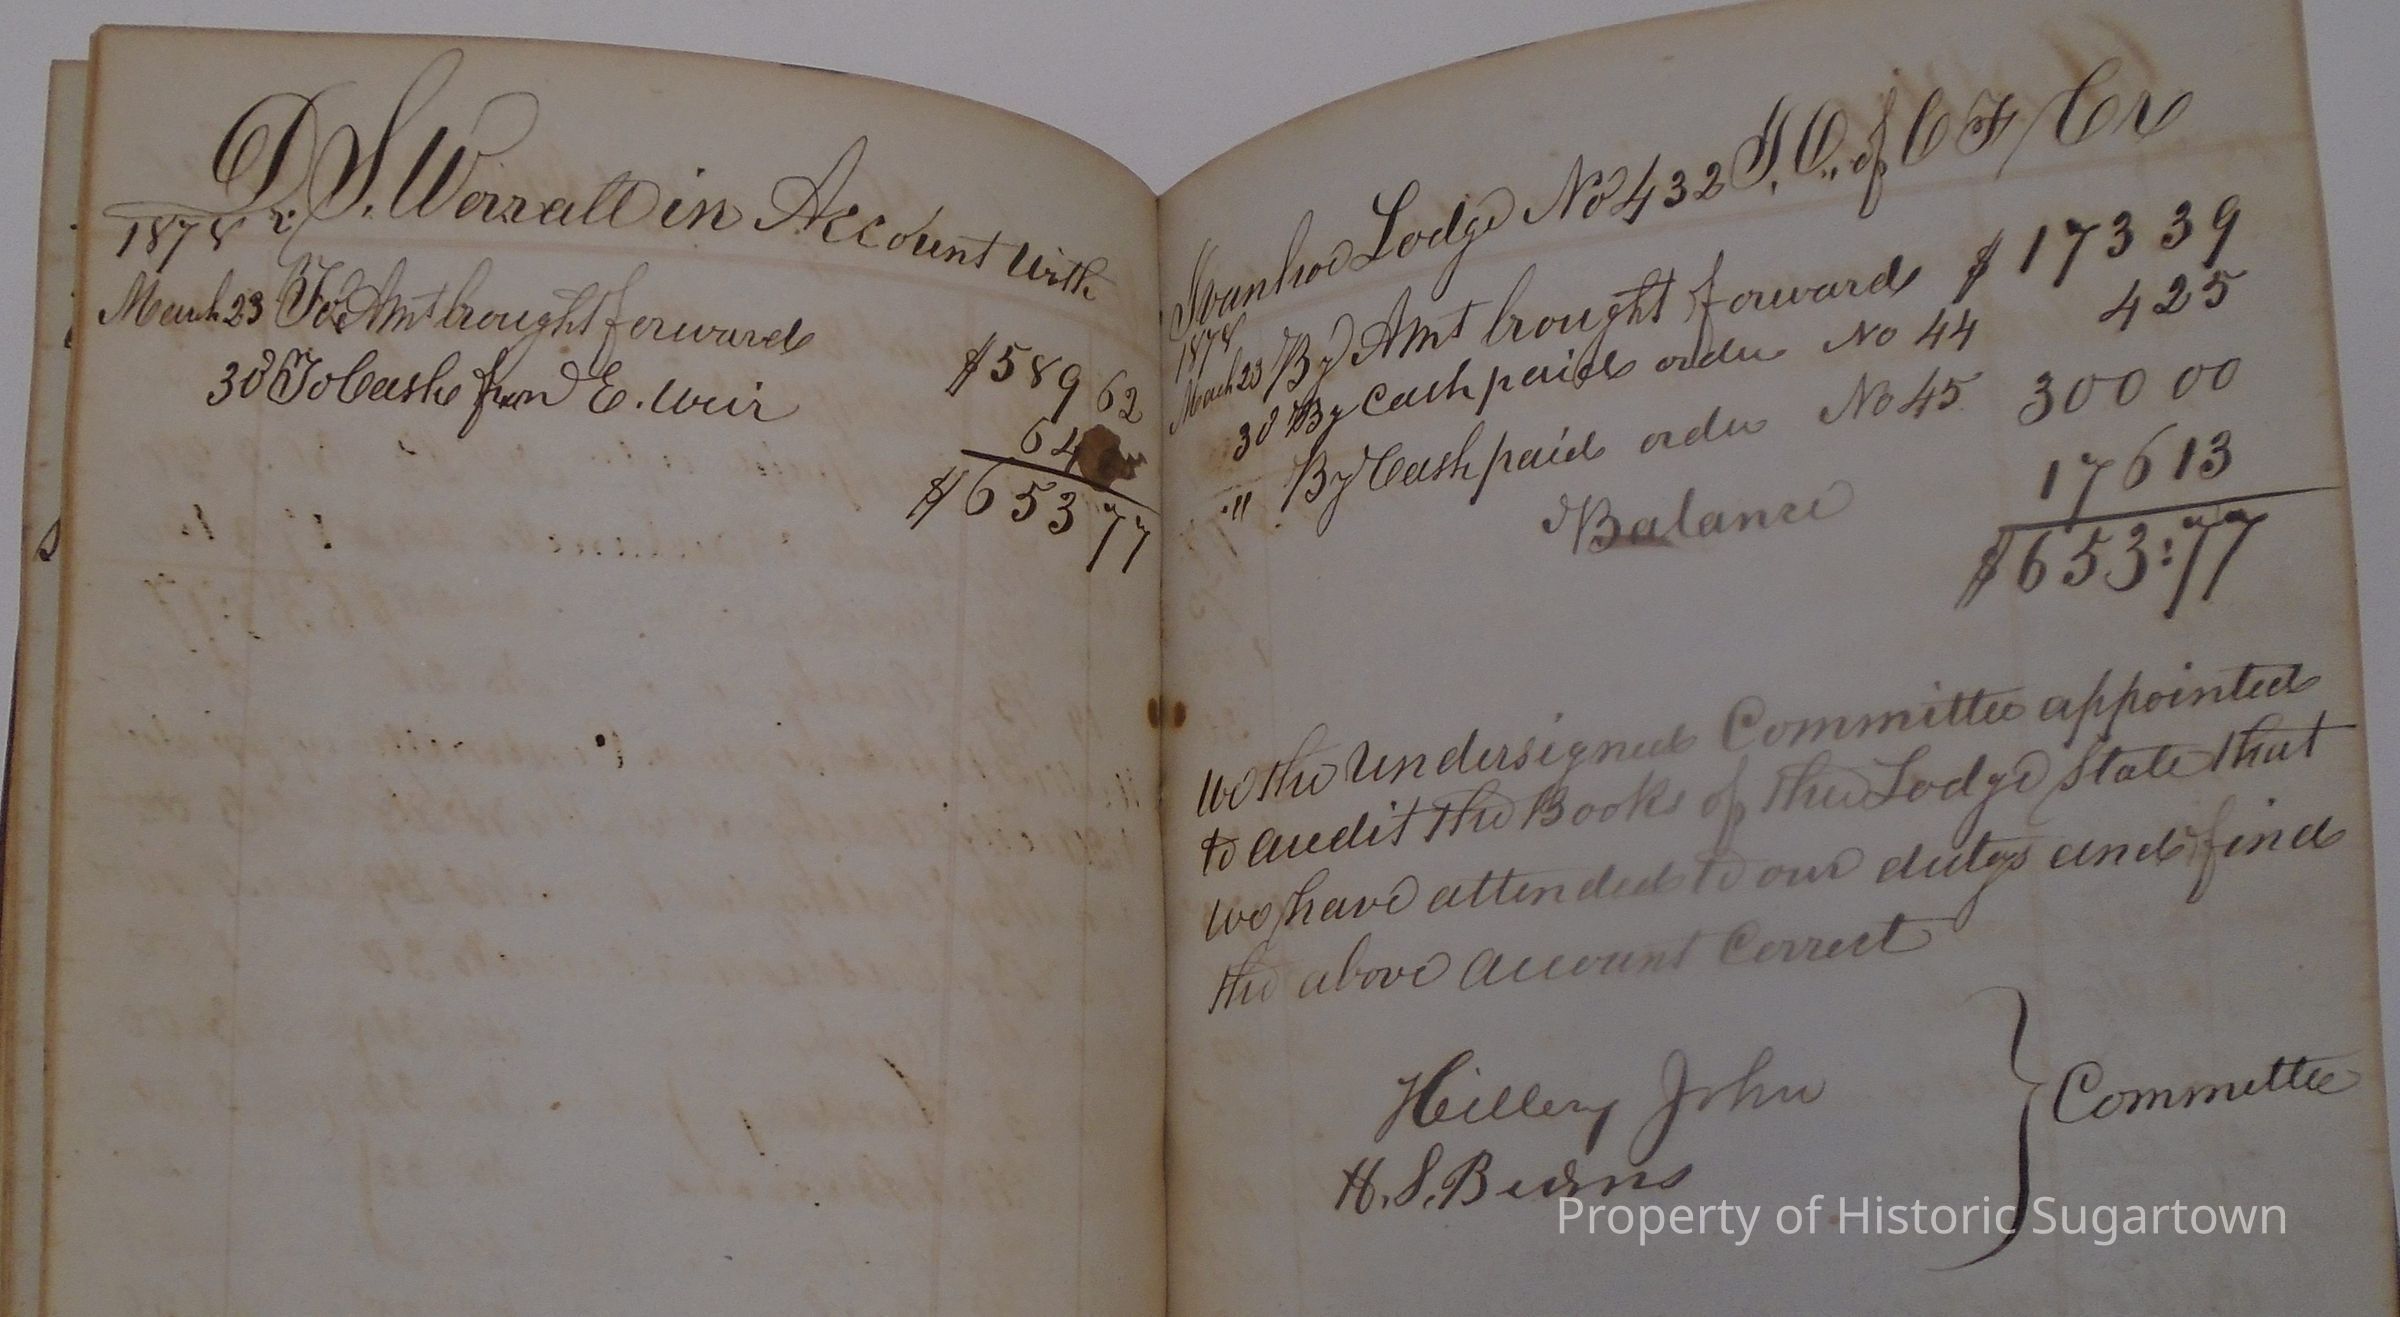 Dr S. Worrall in Account With
1878
March 23 To Amt brought forward $589 62
30 To Cash from E. Weir 64
$653 77
Ivanhoe Lodge No 432 I. O. of O F Cr
1878
March 23 By Amt brought forward $173 39
30 By Cash paid order No 44 4 25
" By Cash paid order No 45 300 00
Balance 176 13
$653:77
We the Undersigned Committee appointed
to audit the Books of the Lodge State that
we have attended to our dutys and find
the above account Correct
Hillery John
H. S. Burns
Committee
Property of Historic Sugartown